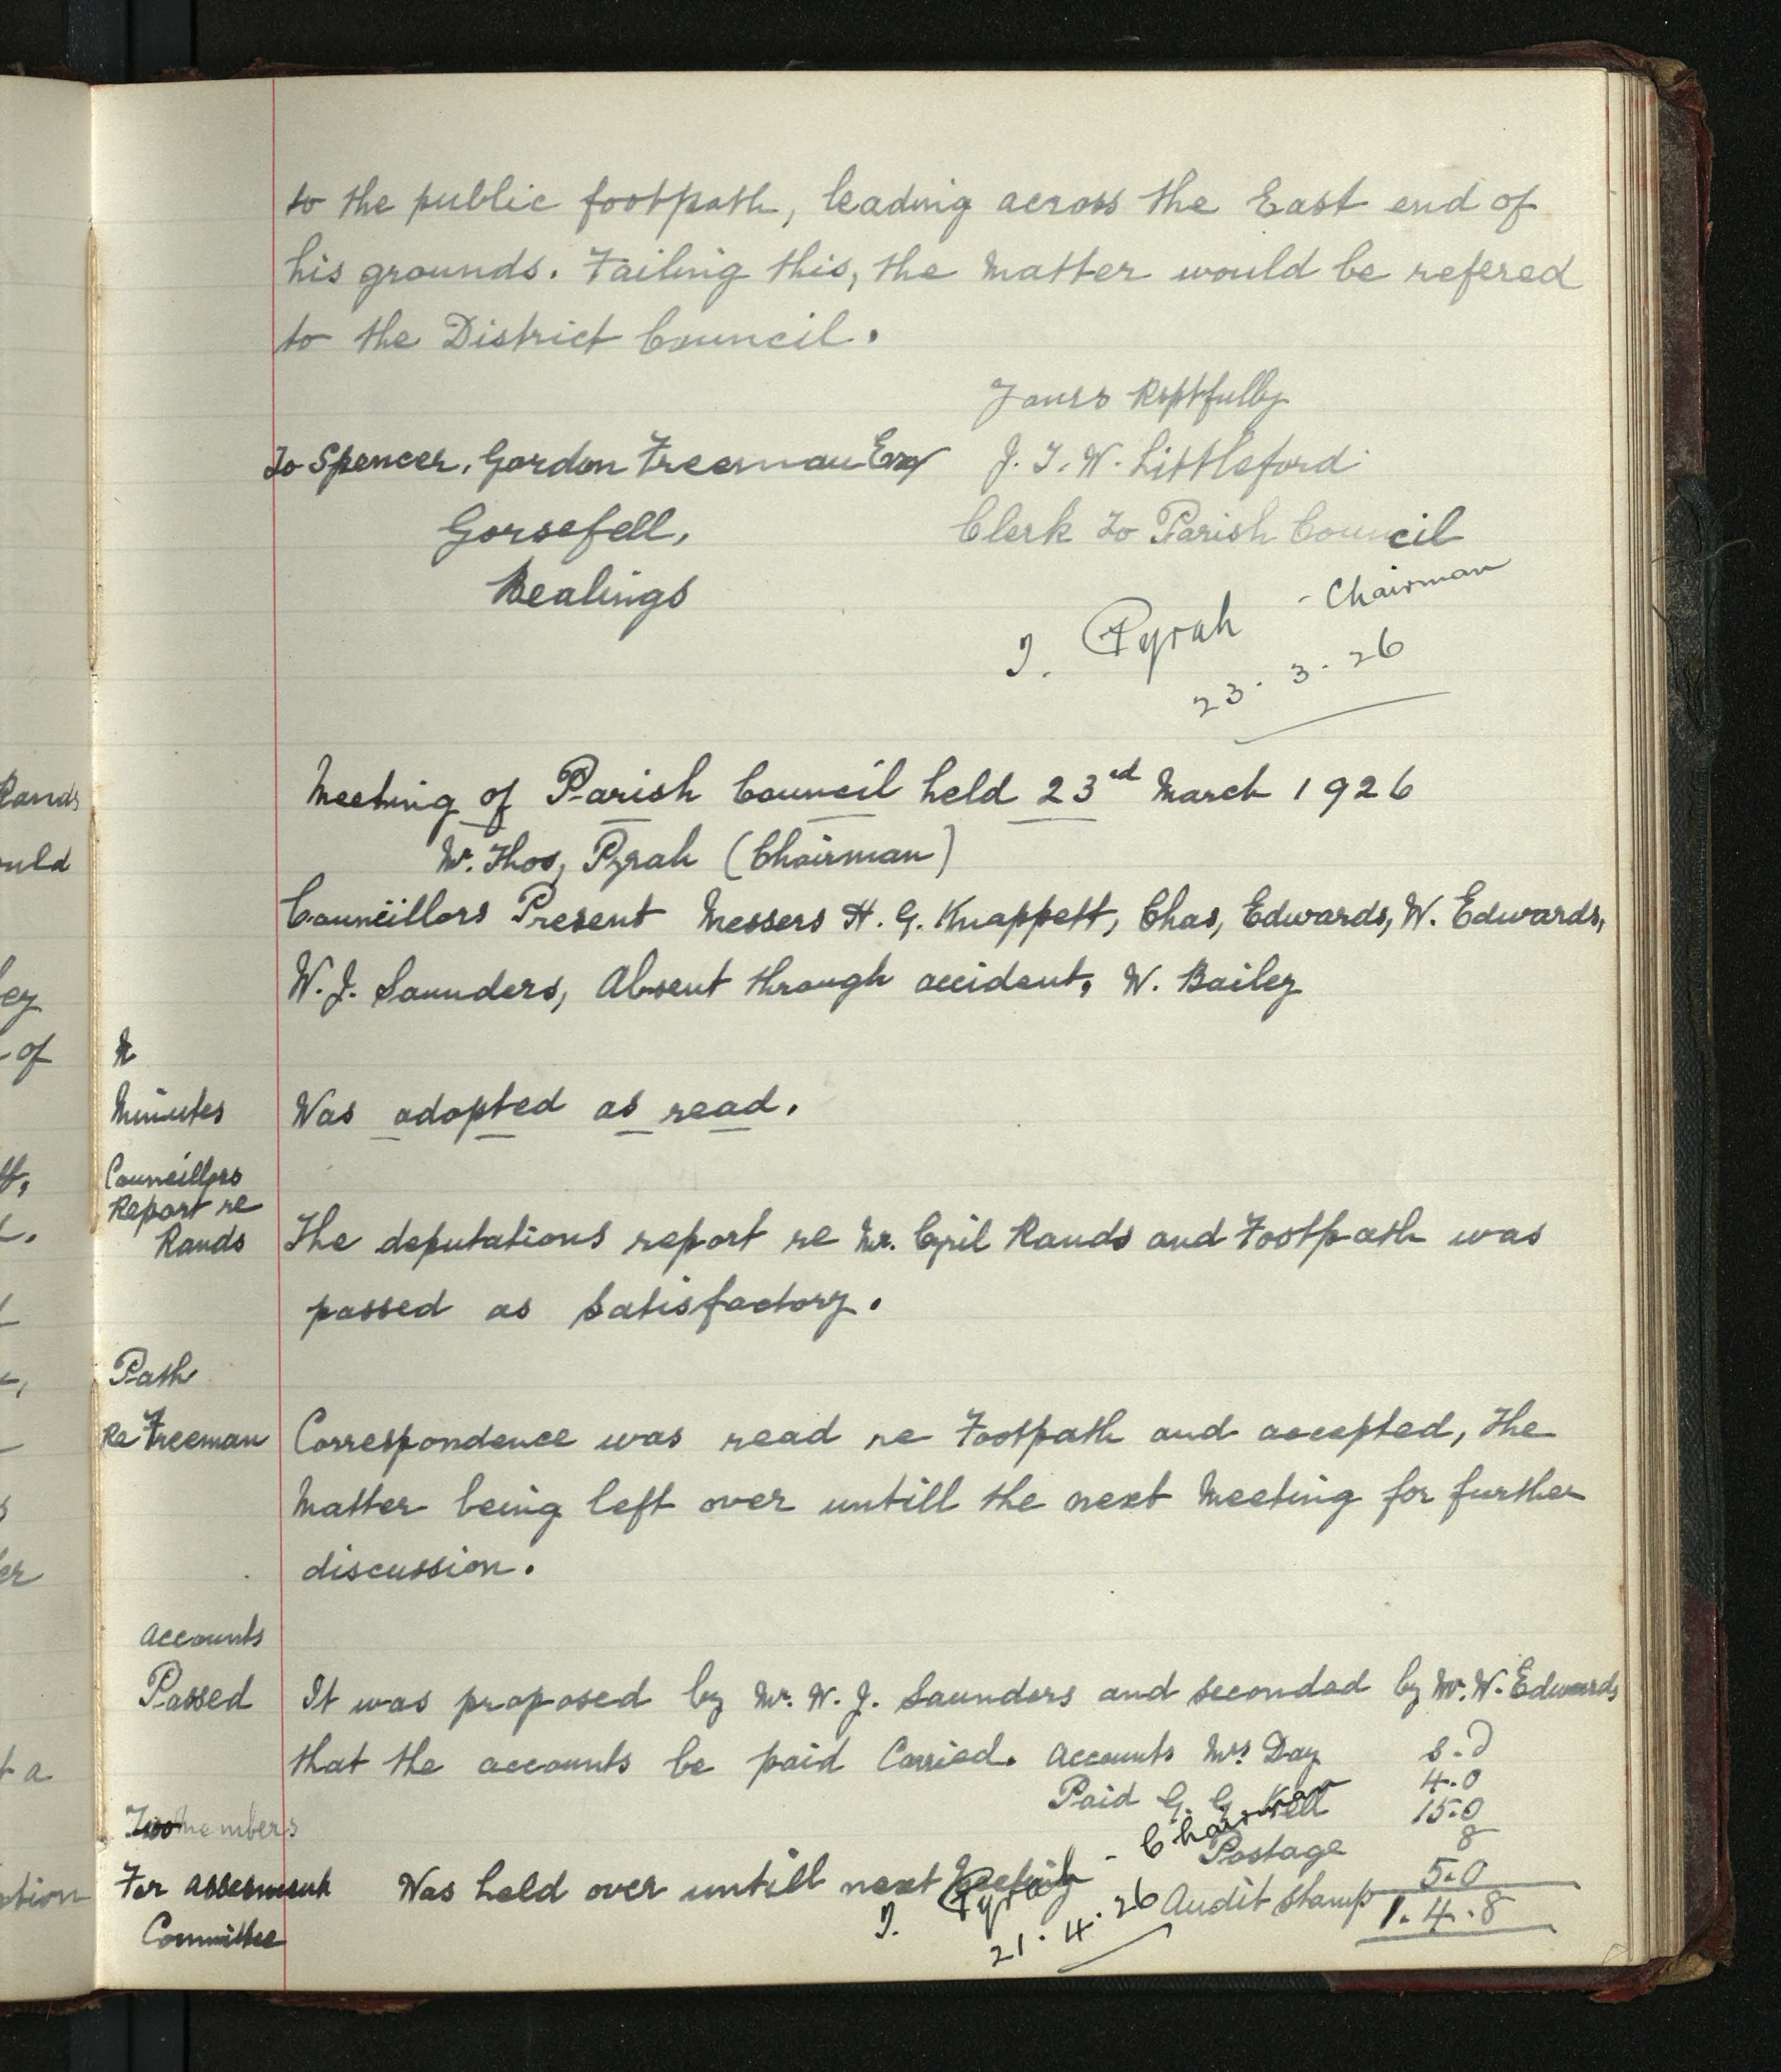 to the public footpath, leading across the East end of
his grounds. Failing this, the Matter would be refered
to the District Council.
Yours Rsptfully
To Spencer, Gordon Freeman Esq J. T. W. Littleford
Gorsefell, Clerk to Parish Council
Bealings
T. Pyrah - Chairman
23. 3. 26
Meeting of Parish Council held 23rd March 1926
Mr. Thos, Pyrah (Chairman)
Councillors Present Messers H. G. Knappett, Chas, Edwards, W. Edwards,
W. J. Saunders, Absent through accident, W. Bailey
Minutes Was adopted as read.
Councillors
Report re
Rands The deputations report re Mr. Cyril Rands and Footpath was
passed as Satisfactory.
Path
Re Freeman Correspondence was read re Footpath and accepted, The
Matter being left over untill the next Meeting for further
discussion.
Accounts
Passed It was proposed by Mr. W. J. Saunders and seconded by Mr. W. Edwards
that the accounts be paid Carried. Accounts Mrs Day s.d
4.0
Paid G. G. Kell 15.0
Two members Postage 8
For Assesment Was held over untill next Meeting Audit Stamp 5.0
Committee 1.4.8
T. Pyrah - Chairman
21.4.26
Rands
uld
ey
of
er
t a